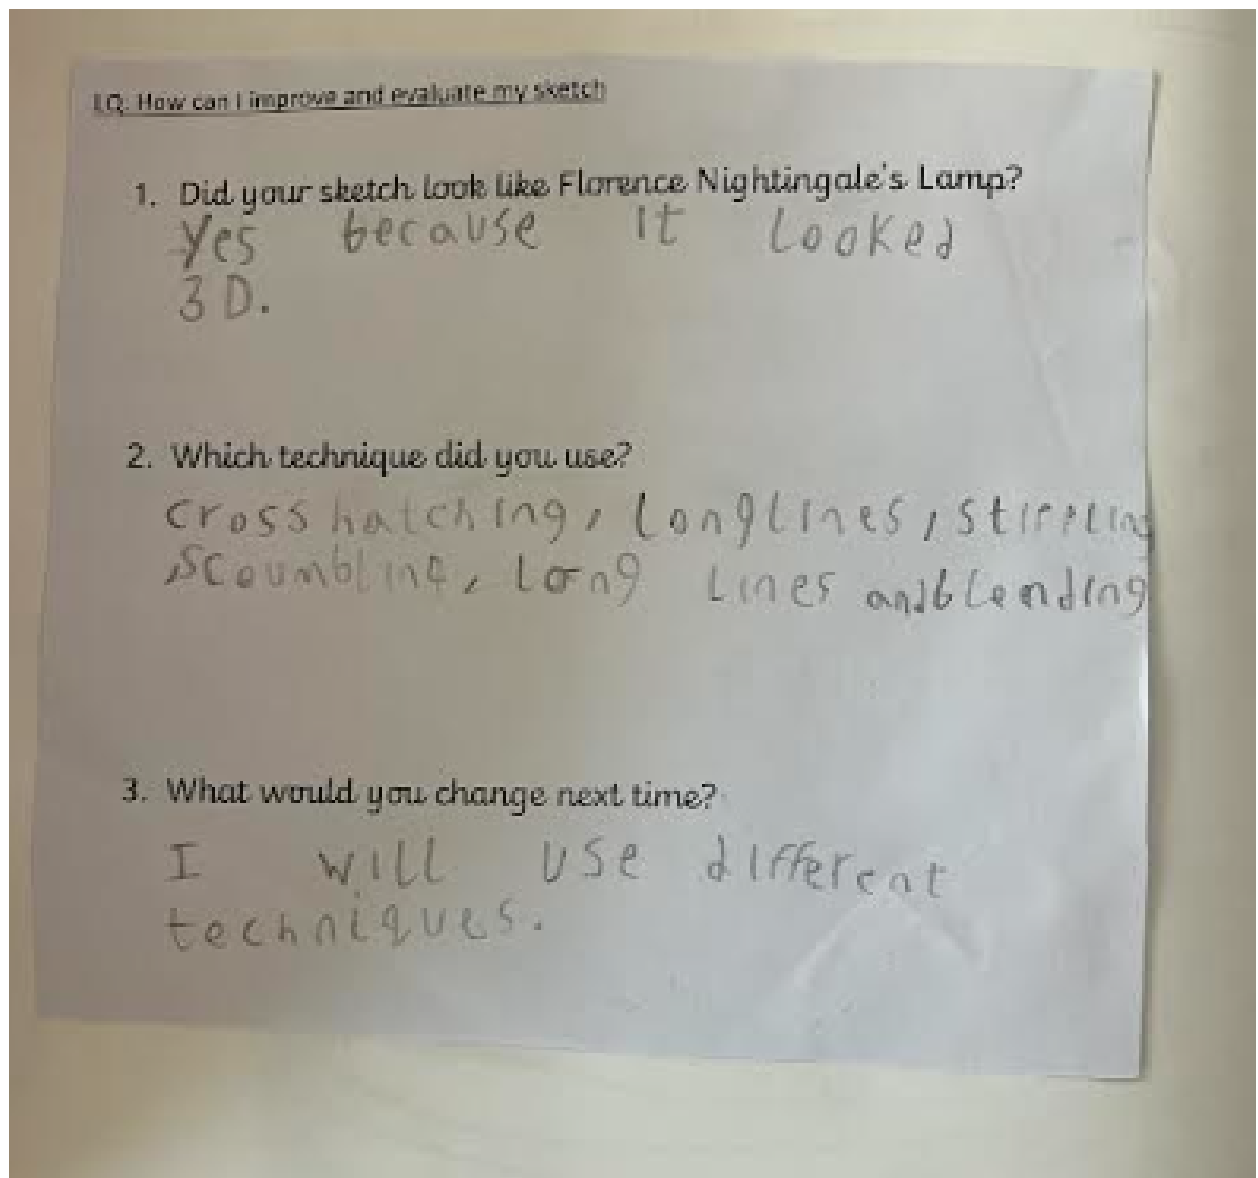 LQ: How can I improve and evaluate my sketch
1. Did your sketch look like Florence Nightingale's Lamp?
Yes because it looked
3D.
2. Which technique did you use?
cross hatching, long lines, stippling
,scoumbling, long lines and blending
3. What would you change next time?
I will use different
techniques.